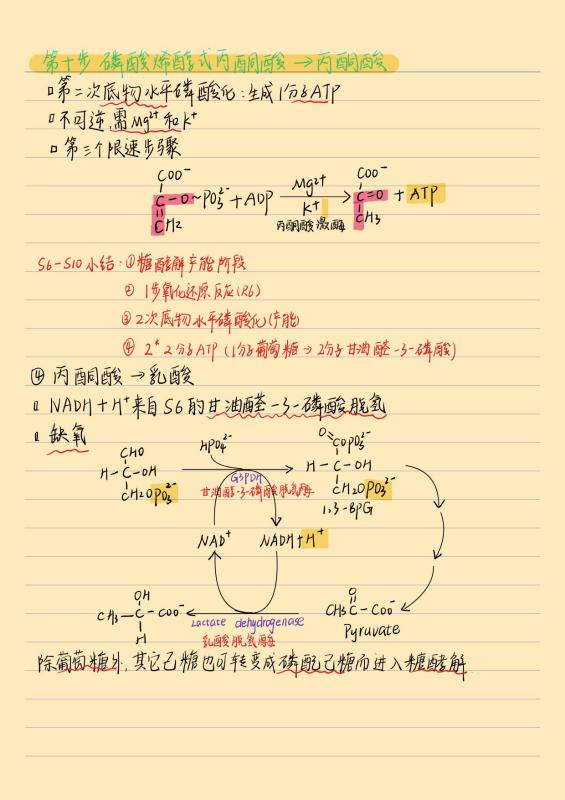 第十步 磷酸烯醇式丙酮酸→丙酮酸
第二次底物水平磷酸化:生成1分子ATP
不可逆,需Mg²⁺和K⁺
第三个限速步骤
COO⁻
C-O~PO₃²⁻+ADP
CH₂
Mg²⁺
K⁺
丙酮酸激酶
COO⁻
C=O
CH₃
+ ATP
S6-S10小结:①糖酵解产能阶段
② 1步氧化还原反应(R6)
③ 2次底物水平磷酸化(产能)
④ 2*2分子ATP(1分子葡萄糖→2分子甘油醛-3-磷酸)
④ 丙酮酸→乳酸
NADH+H⁺来自S6的甘油醛-3-磷酸脱氢
缺氧
CHO
H-C-OH
CH₂OPO₃²⁻
HPO₄²⁻
G3PDH
甘油醛-3-磷酸脱氢酶
O
COPO₃²⁻
H-C-OH
CH₂OPO₃²⁻
1,3-BPG
NAD⁺
NADH+H⁺
OH
CH₃-C-COO⁻
H
Lactate dehydrogenase
乳酸脱氢酶
O
CH₃C-COO⁻
Pyruvate
除葡萄糖外,其它己糖也可转变成磷酸己糖而进入糖酵解